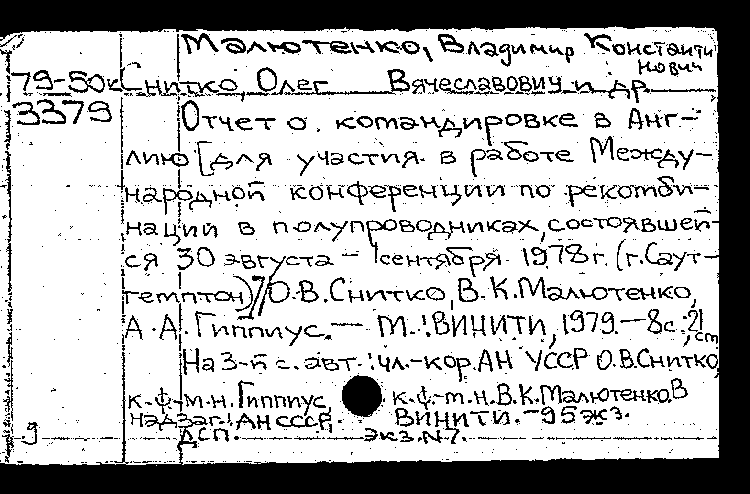 Малютенко, Владимир Константи
нович
79-50к Снитко, Олег Вячеславович и др.
3379 Отчет о командировке в Анг-
лию [для участия в работе Между-
народной конференции по рекомби-
нации в полупроводниках, состоявшей-
ся 30 августа - 1 сентября 1978 г. (г. Саут-
гемптон)] // О.В. Снитко, В.К. Малютенко,
А.А. Гиппиус. — М.: ВИНИТИ, 1979. — 8с.; 21
см
На 3-й с. авт.: чл.-кор. АН УССР О.В. Снитко,
к.ф.-м.н. Гиппиус к.ф.-м.н. В.К. Малютенко В
надзаг.: АН СССР. ВИНИТИ. - 95 экз.
9 ДСП. экз. N7.